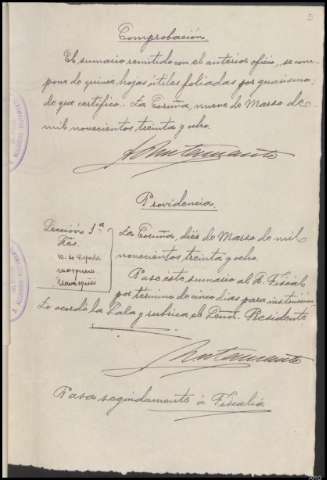 Comprobación
El sumario remitido con el anterior oficio, se com-
pone de quince hojas útiles foliadas por guarismo,
de que certifico. La Coruña, nueve de Marzo de
mil novecientos treinta y ocho.
Providencia
Sección 1ª
La Coruña, diez de Marzo de mil
novecientos treinta y ocho
Pase este sumario al Sr. Fiscal
por término de cinco días para instrucción
Lo acordó la Sala y rubrica el Señor Presidente
Pasa seguidamente a Fiscalía